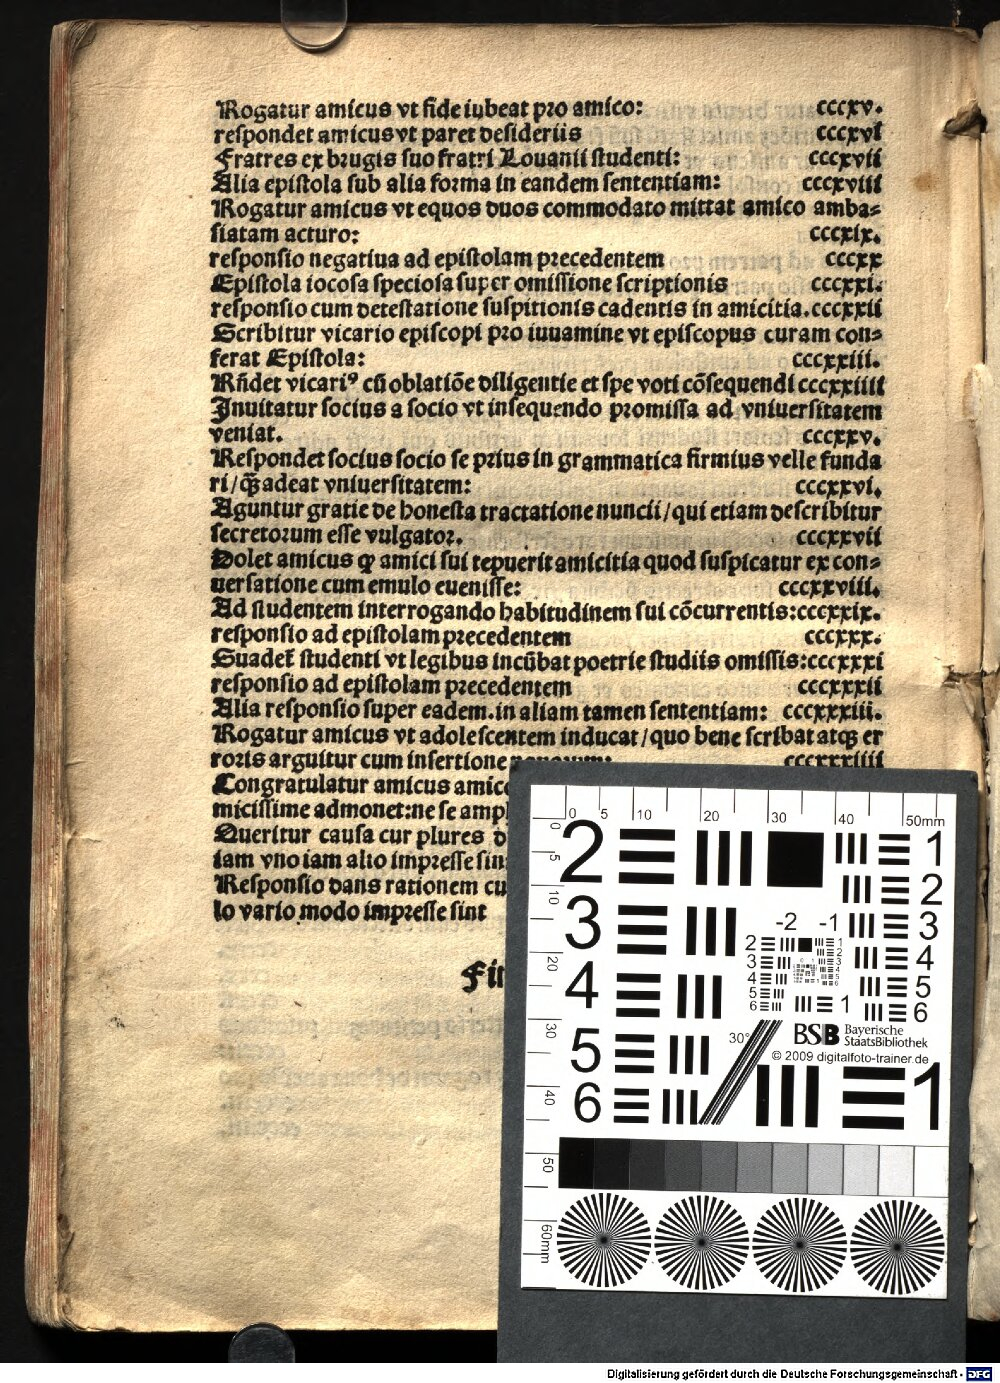 Rogatur amicus vt fide iubeat pro amico: cccxv.
respondet amicus vt paret desideriis cccxvi
Fratres ex brugis suo fratri Louanii studenti: cccxvii
Alia epistola sub alia forma in eandem sententiam: cccxviii
Rogatur amicus vt equos duos commodato mittat amico amba⸗
siatam acturo: cccxix.
responsio negatiua ad epistolam precedentem cccxx
Epistola iocosa speciosa super omissione scriptionis cccxxi.
responsio cum detestatione suspitionis cadentis in amicitia. cccxxii
Scribitur vicario episcopi pro iuuamine vt episcopus curam con⸗
ferat Epistola: cccxxiii.
Rñdet vicariꝰ cū oblatiōe diligentie et spe voti cōsequendi cccxxiiii
Inuitatur socius a socio vt insequendo promissa ad vniuersitatem
veniat. cccxxv.
Respondet socius socio se prius in grammatica firmius velle funda
ri/q̄ꝫ adeat vniuersitatem: cccxxvi.
Aguntur gratie de honesta tractatione nuncii/qui etiam describitur
secretorum esse vulgator. cccxxvii
Dolet amicus ꝙ amici sui tepuerit amicitia quod suspicatur ex con⸗
uersatione cum emulo euenisse: cccxxviii.
Ad studentem interrogando habitudinem sui cōcurrentis: cccxxix.
responsio ad epistolam precedentem cccxxx.
Suadet̃ studenti vt legibus incūbat poetrie studiis omissis: cccxxxi
responsio ad epistolam precedentem cccxxxii
Alia responsio super eadem. in aliam tamen sententiam: cccxxxiii.
Rogatur amicus vt adolescentem inducat/quo bene scribat atqꝫ er
roris arguitur cum insertione cccxxxiiii
Congratulatur amicus amico
micissime admonet: ne se ampl
Queritur causa cur plures d
iam vno iam alio impresse sin
Responsio dans rationem cu
lo vario modo impresse sint
Fin
0 5 10 20 30 40 50mm
0 5 10 20 30 40 50 60mm
2 3 4 5 6
1 2 3 4 5 6
-2 -1
2 3 4 5 6
1 2 3 4 5 6
1
30°
BSB Bayerische
StaatsBibliothek
© 2009 digitalfoto-trainer.de
1
Digitalisierung gefördert durch die Deutsche Forschungsgemeinschaft - DFG